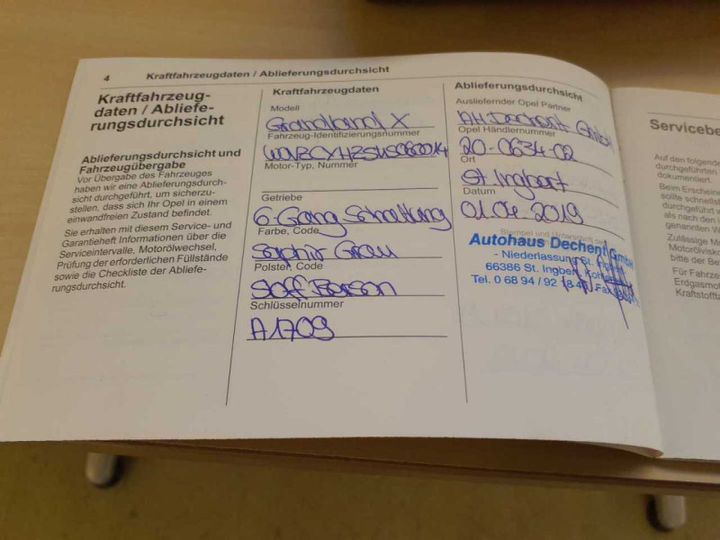 4 Kraftfahrzeugdaten / Ablieferungsdurchsicht
Kraftfahrzeug-
daten / Abliefe-
rungsdurchsicht
Ablieferungsdurchsicht und
Fahrzeugübergabe
Vor Übergabe des Fahrzeuges
haben wir eine Ablieferungsdurch-
sicht durchgeführt, um sicherzu-
stellen, dass sich Ihr Opel in einem
einwandfreien Zustand befindet.
Sie erhalten mit diesem Service- und
Garantieheft Informationen über die
Serviceintervalle, Motorölwechsel,
Prüfung der erforderlichen Füllstände
sowie die Checkliste der Abliefe-
rungsdurchsicht.
Kraftfahrzeugdaten
Modell
Grandland X
Fahrzeug-Identifizierungsnummer
Motor-Typ, Nummer
Getriebe
6-Gang Schaltung
Farbe, Code
Saphir Grau
Polster, Code
Stoff
Schlüsselnummer
A1709
Ablieferungsdurchsicht
Ausliefernder Opel Partner
AH Dechent GmbH
Opel Händlernummer
20-0634-02
Ort
St Ingbert
Datum
01.04.2019
Stempel und Unterschrift
Autohaus Dechent GmbH
- Niederlassung St.
66386 St. Ingbert,
Tel. 0 68 94 / 92
Auf den folgende
durchgeführten
dokumentiert.
Beim Erscheine
sollte schnellst
durchgeführt
als nach den
genannten
Zulässige
bitte der
Für Fahrze
Erdgasmo
Kraftstoff